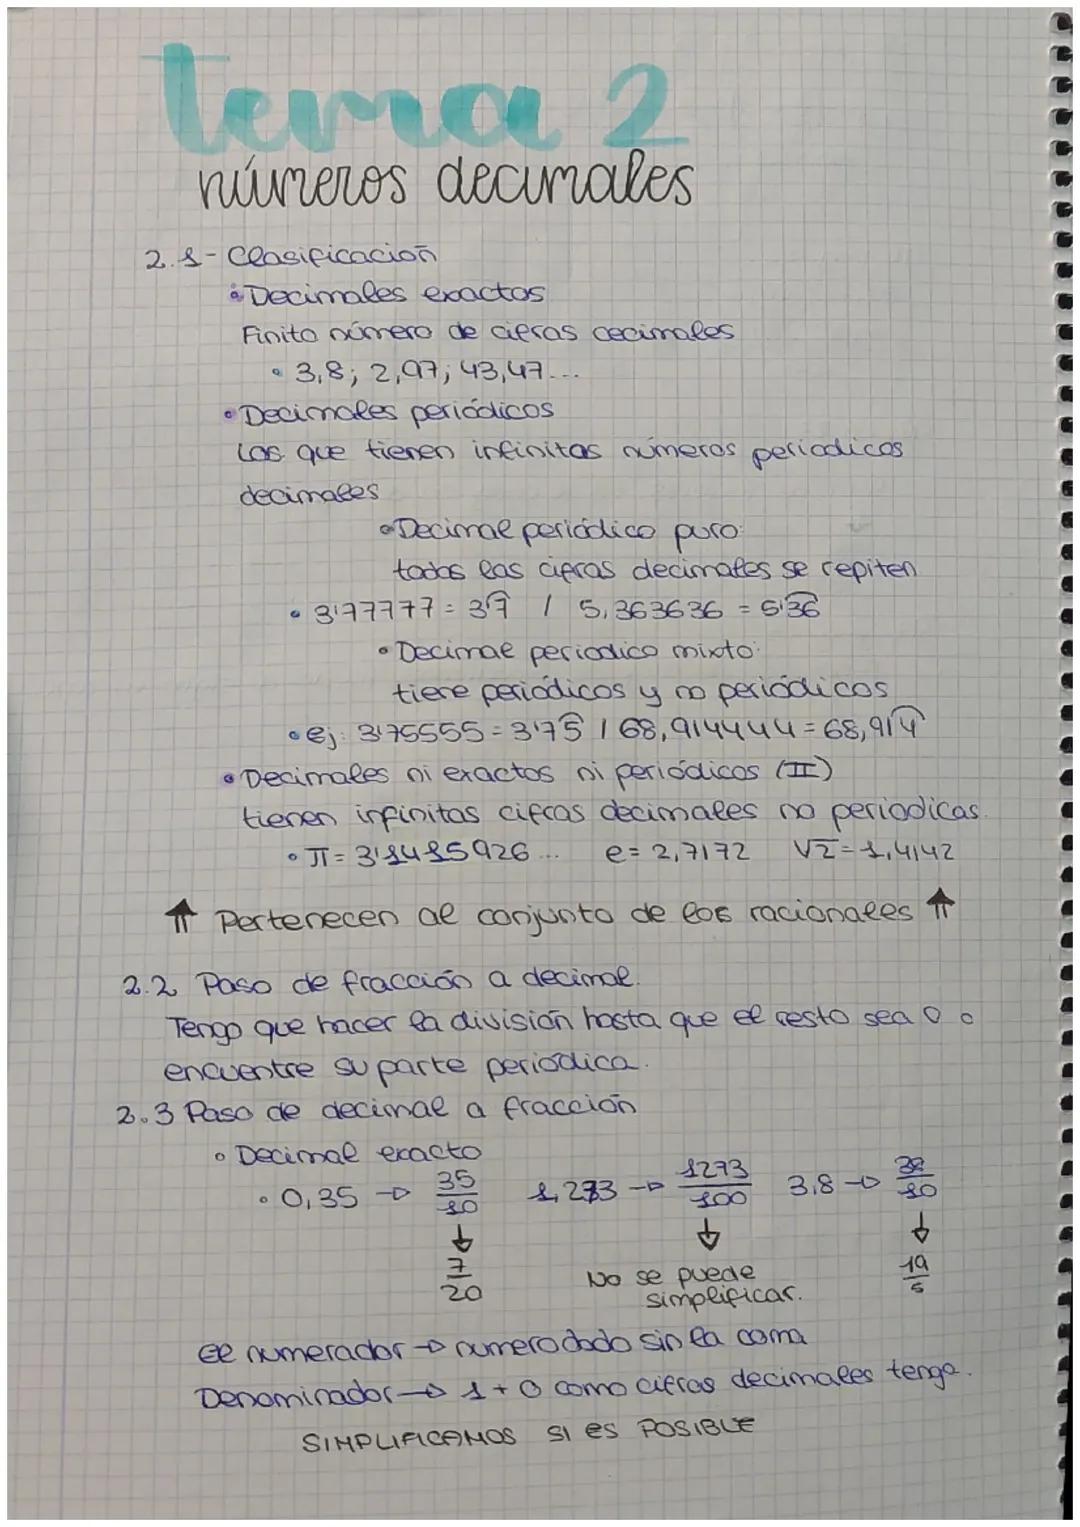 tema 2
números decimales
2.1- Clasificación
• Decimales exactos
Finito número de cifras cecimales
• 3,8; 2,97; 43,47...
• Decimales periódicos
Los que tienen infinitos números periodicos
decimales
• Decimal periódico puro:
todas las cifras decimales se repiten
• 3'77777 = 3'7̂ / 5,363636 = 5'3͡6
• Decimal periodico mixto:
tiene periódicos y no periódicos
• ej: 3'75555 = 3'75̂ / 68,914444 = 68,914̂
• Decimales ni exactos ni periódicos (II)
tienen infinitas cifras decimales no periodicas.
• π = 3'1415926... e = 2,7172 √2 = 1,4142
⇑ Pertenecen al conjunto de los racionales ⇑
2.2 Paso de fracción a decimal.
Tengo que hacer la división hasta que el resto sea 0 o
encuentre su parte periódica.
2.3 Paso de decimal a fracción
• Decimal exacto
• 0,35 → 35/10 1,273 → 1273/100 3,8 → 38/10
↓ ↓ ↓
7/20 No se puede 19/5
simplificar.
El numerador → numero dado sin la coma
Denominador → 1 + 0 como cifras decimales tenga.
SIMPLIFICAMOS SI ES POSIBLE